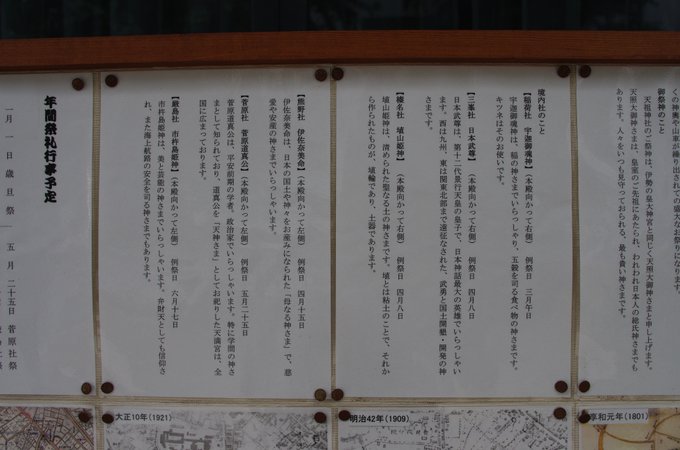 くの神輿や山車が繰り出されての盛大なお祭りになります。
御祭神のこと
天祖神社のご祭神は、伊勢の皇大神宮と同じく天照大御神さまと申し上げます。
天照大御神さまは、皇室のご先祖にあたられ、われわれ日本人の総氏神さまでも
あります。人々をいつも見守っておられる、最も貴い神さまです。
境内社のこと
【稲荷社 宇迦御魂神】（本殿向かって右側） 例祭日 三月午日
宇迦御魂神は、稲の神さまでいらっしゃり、五穀を司る食べ物の神さまです。
キツネはそのお使いです。
【三峯社 日本武尊】（本殿向かって右側） 例祭日 四月八日
日本武尊は、第十二代景行天皇の皇子で、日本神話最大の英雄でいらっしゃい
ます。西は九州、東は関東北部まで遠征なされた、武勇と国土開墾・開発の神
さまです。
【榛名社 埴山姫神】（本殿向かって右側） 例祭日 四月八日
埴山姫神は、清められた聖なる土の神さまです。埴とは粘土のことで、それか
ら作られたものが、埴輪であり、土器であります。
【熊野社 伊佐奈美命】（本殿向かって左側） 例祭日 四月十五日
伊佐奈美命は、日本の国土や神々をお産みになられた「母なる神さま」で、慈
愛や安産の神さまでいらっしゃいます。
【菅原社 菅原道真公】（本殿向かって左側） 例祭日 五月二十五日
菅原道真公は、平安前期の学者、政治家でいらっしゃいます。特に学問の神さ
まとして知られており、道真公を「天神さま」としてお祀りした天満宮は、全
国に広まっております。
【厳島社 市杵島姫神】（本殿向かって左側） 例祭日 六月十七日
市杵島姫神は、美と芸能の神さまでいらっしゃいます。弁財天としても信仰さ
れ、また海上航路の安全を司る神さまでもあります。
年間祭礼行事予定
一月 一日 歳旦祭 五月 二十五日 菅原社祭
大正10年(1921)
明治42年(1909)
享和元年(1801)